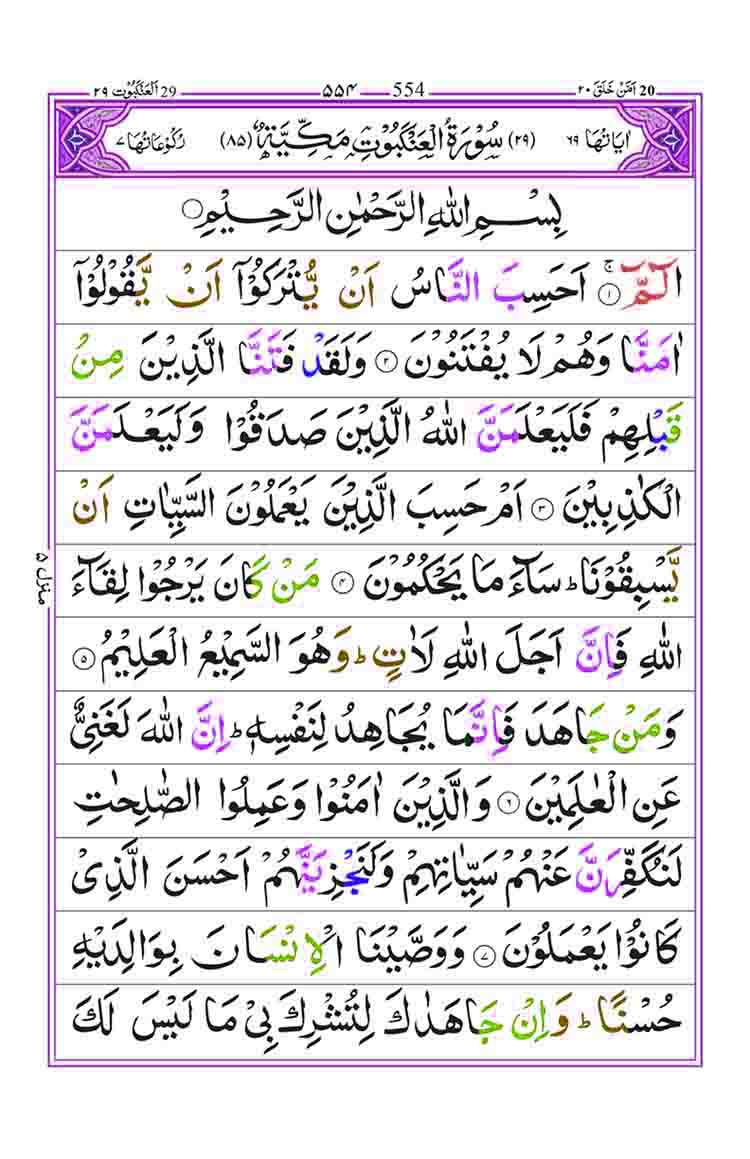 20 اَمَّنْ خَلَقَ ٢٠ 554 ۵۵۴ 29 اَلْعَنْكَبُوْت ٢٩
اٰيَاتُهَا ٦٩ (٢٩) سُوْرَةُ الْعَنْكَبُوْتِ مَكِّيَّةٌ (٨٥) رُكُوْعَاتُهَا ٧
بِسْمِ اللّٰهِ الرَّحْمٰنِ الرَّحِيْمِ
الٓمّٓ ۚ‏﴿۱﴾ اَحَسِبَ النَّاسُ اَنْ يُّتْرَكُوْۤا اَنْ يَّقُوْلُوْۤا
اٰمَنَّا وَهُمْ لَا يُفْتَنُوْنَ ﴿۲﴾ وَلَقَدْ فَتَنَّا الَّذِيْنَ مِنْ
قَبْلِهِمْ فَلَيَعْلَمَنَّ اللّٰهُ الَّذِيْنَ صَدَقُوْا وَلَيَعْلَمَنَّ
الْكٰذِبِيْنَ ﴿۳﴾ اَمْ حَسِبَ الَّذِيْنَ يَعْمَلُوْنَ السَّيِّاٰتِ اَنْ
يَّسْبِقُوْنَا ؕ سَآءَ مَا يَحْكُمُوْنَ ﴿۴﴾ مَنْ كَانَ يَرْجُوْا لِقَآءَ
اللّٰهِ فَاِنَّ اَجَلَ اللّٰهِ لَاٰتٍ ؕ وَهُوَ السَّمِيْعُ الْعَلِيْمُ ﴿۵﴾
وَمَنْ جَاهَدَ فَاِنَّمَا يُجَاهِدُ لِنَفْسِهٖ ؕ اِنَّ اللّٰهَ لَغَنِيٌّ
عَنِ الْعٰلَمِيْنَ ﴿۶﴾ وَالَّذِيْنَ اٰمَنُوْا وَعَمِلُوا الصّٰلِحٰتِ
لَنُكَفِّرَنَّ عَنْهُمْ سَيِّاٰتِهِمْ وَلَنَجْزِيَنَّهُمْ اَحْسَنَ الَّذِىْ
كَانُوْا يَعْمَلُوْنَ ﴿۷﴾ وَوَصَّيْنَا الْاِنْسَانَ بِوَالِدَيْهِ
حُسْنًا ؕ وَاِنْ جَاهَدٰكَ لِتُشْرِكَ بِىْ مَا لَيْسَ لَكَ
منزل ۵